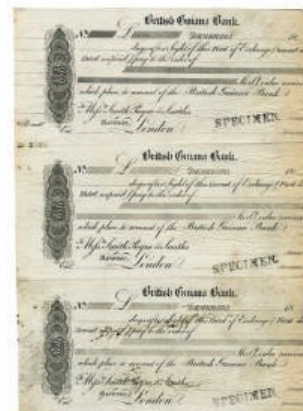 British Guiana Bank.
No. £ DEMERARA 18
days after sight of this First of Exchange (Second and
Third unpaid) pay to the order of
value received
which place to account of the British Guiana Bank.
To Messrs Smith Payne & Smiths
Bankers
London
SPECIMEN.
British Guiana Bank.
No. £ DEMERARA 18
days after sight of this Second of Exchange (First
Third unpaid) pay to the order of
value received
which place to account of the British Guiana Bank.
To Messrs Smith Payne & Smiths
Bankers
London
SPECIMEN.
British Guiana Bank.
No. £ DEMERARA 18
days after sight of this Third of Exchange (First
Second unpaid) pay to the order of
value received
which place to account of the British Guiana Bank.
To Messrs Smith Payne & Smiths
Bankers
London
SPECIMEN.